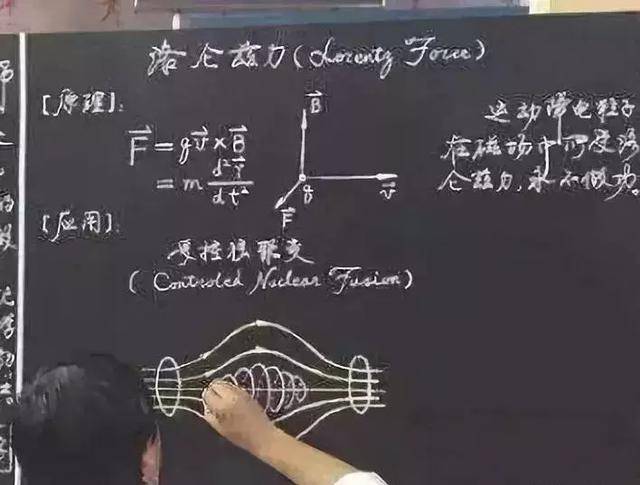 洛仑兹力(Lorentz Force)
[原理]:
F⃗ = qv⃗ × B⃗
= m d²r⃗/dt²
B⃗
v⃗
F⃗
q
运动带电粒子
在磁场中所受洛
仑兹力,永不做功。
[应用]:
受控核聚变
(Controled Nuclear Fusion)